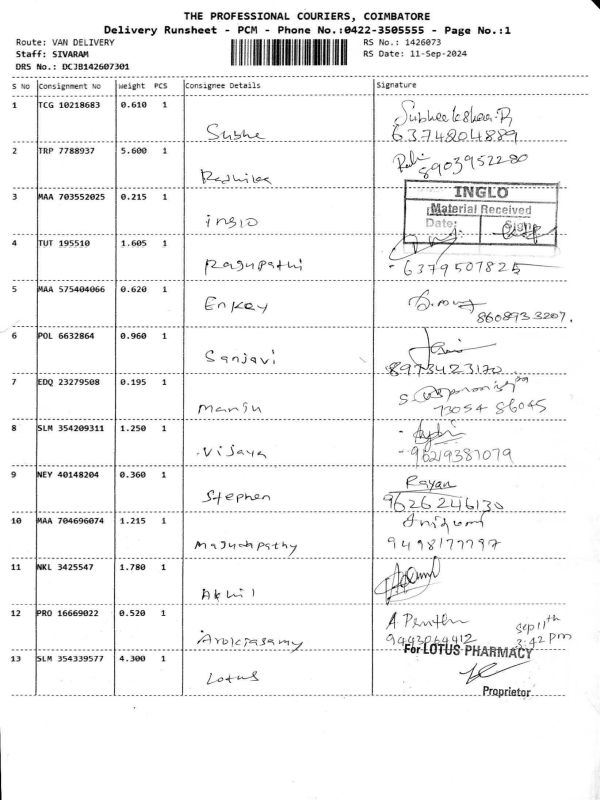 THE PROFESSIONAL COURIERS, COIMBATORE
Delivery Runsheet - PCM - Phone No.:0422-3505555 - Page No.:1
Route: VAN DELIVERY RS No.: 1426073
Staff: SIVARAM RS Date: 11-Sep-2024
DRS No.: DCJB142607301
S No Consignment No Weight PCS Consignee Details Signature
1 TCG 10218683 0.610 1
Subha 6374204889
2 TRP 7788937 5.600 1
Radhika 8903952280
3 MAA 703552025 0.215 1
INGLO
Material Received
inglo Date: Sign
4 TUT 195510 1.605 1
Ragupathi - 6379507825
5 MAA 575404066 0.620 1
Enkay 8608933207.
6 POL 6632864 0.960 1
Sanjavi 8973423170
7 EDQ 23279508 0.195 1
Manju 73054 86045
8 SLM 354209311 1.250 1
Vijaya - 96219381079
9 NEY 40148204 0.360 1 Rayan
Stephen 9626246130
10 MAA 704696074 1.215 1
9498177797
11 NKL 3425547 1.780 1
Akhil
12 PRO 16669022 0.520 1 Sep 11th
Arokiasamy 9443064412 3:42 pm
13 SLM 354339577 4.300 1 For LOTUS PHARMACY
Lotus
Proprietor